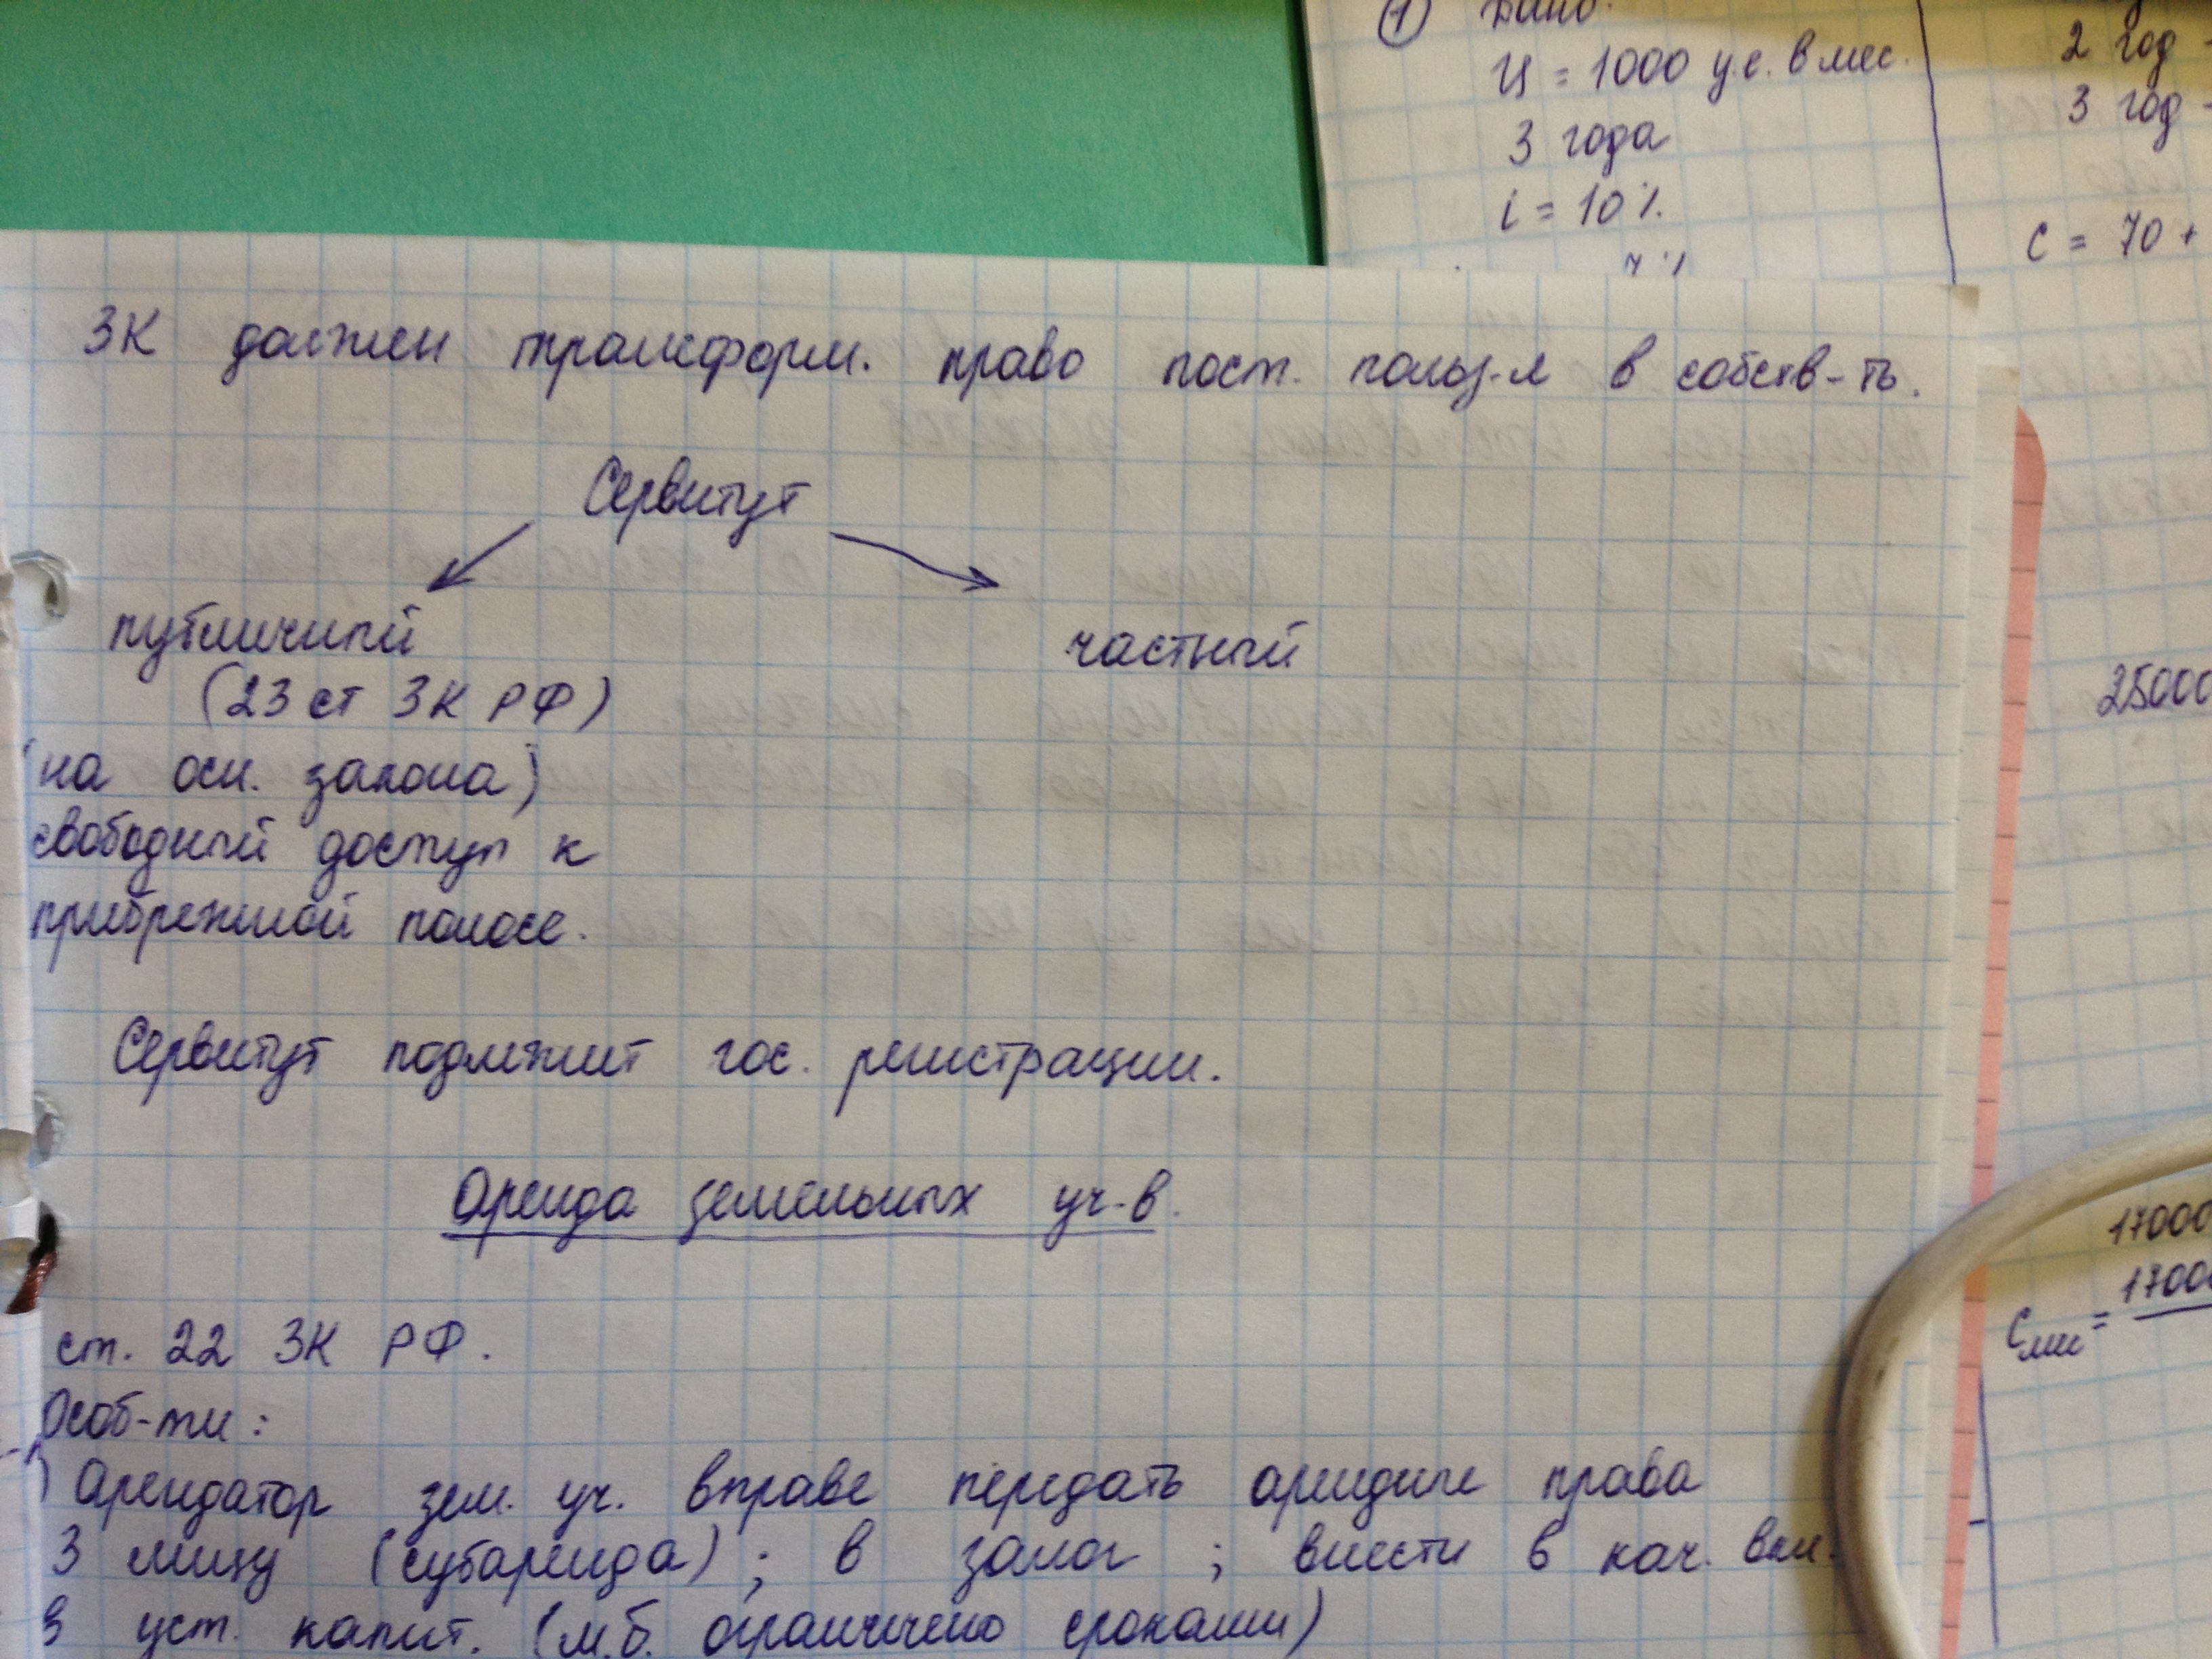 ЗК должен трансформ. право пост. польз-я в собств-ть.
Сервитут
публичный
частный
(23 ст ЗК РФ)
(на осн. закона)
свободный доступ к
прибрежной полосе.
Сервитут подлежит гос. регистрации.
Аренда земельных уч-в.
ст. 22 ЗК РФ.
Особ-ти:
) Арендатор зем. уч. вправе передать арендные права
3 лицу (субаренда) ; в залог ; внести в кач. вкл.
в уст. капит. (м.б. ограничено сроками)
1 Дано:
Ц = 1000 у.е. в мес.
3 года
i = 10%
2 год -
3 год -
С = 70 +
25000
17000
1700
С мес =